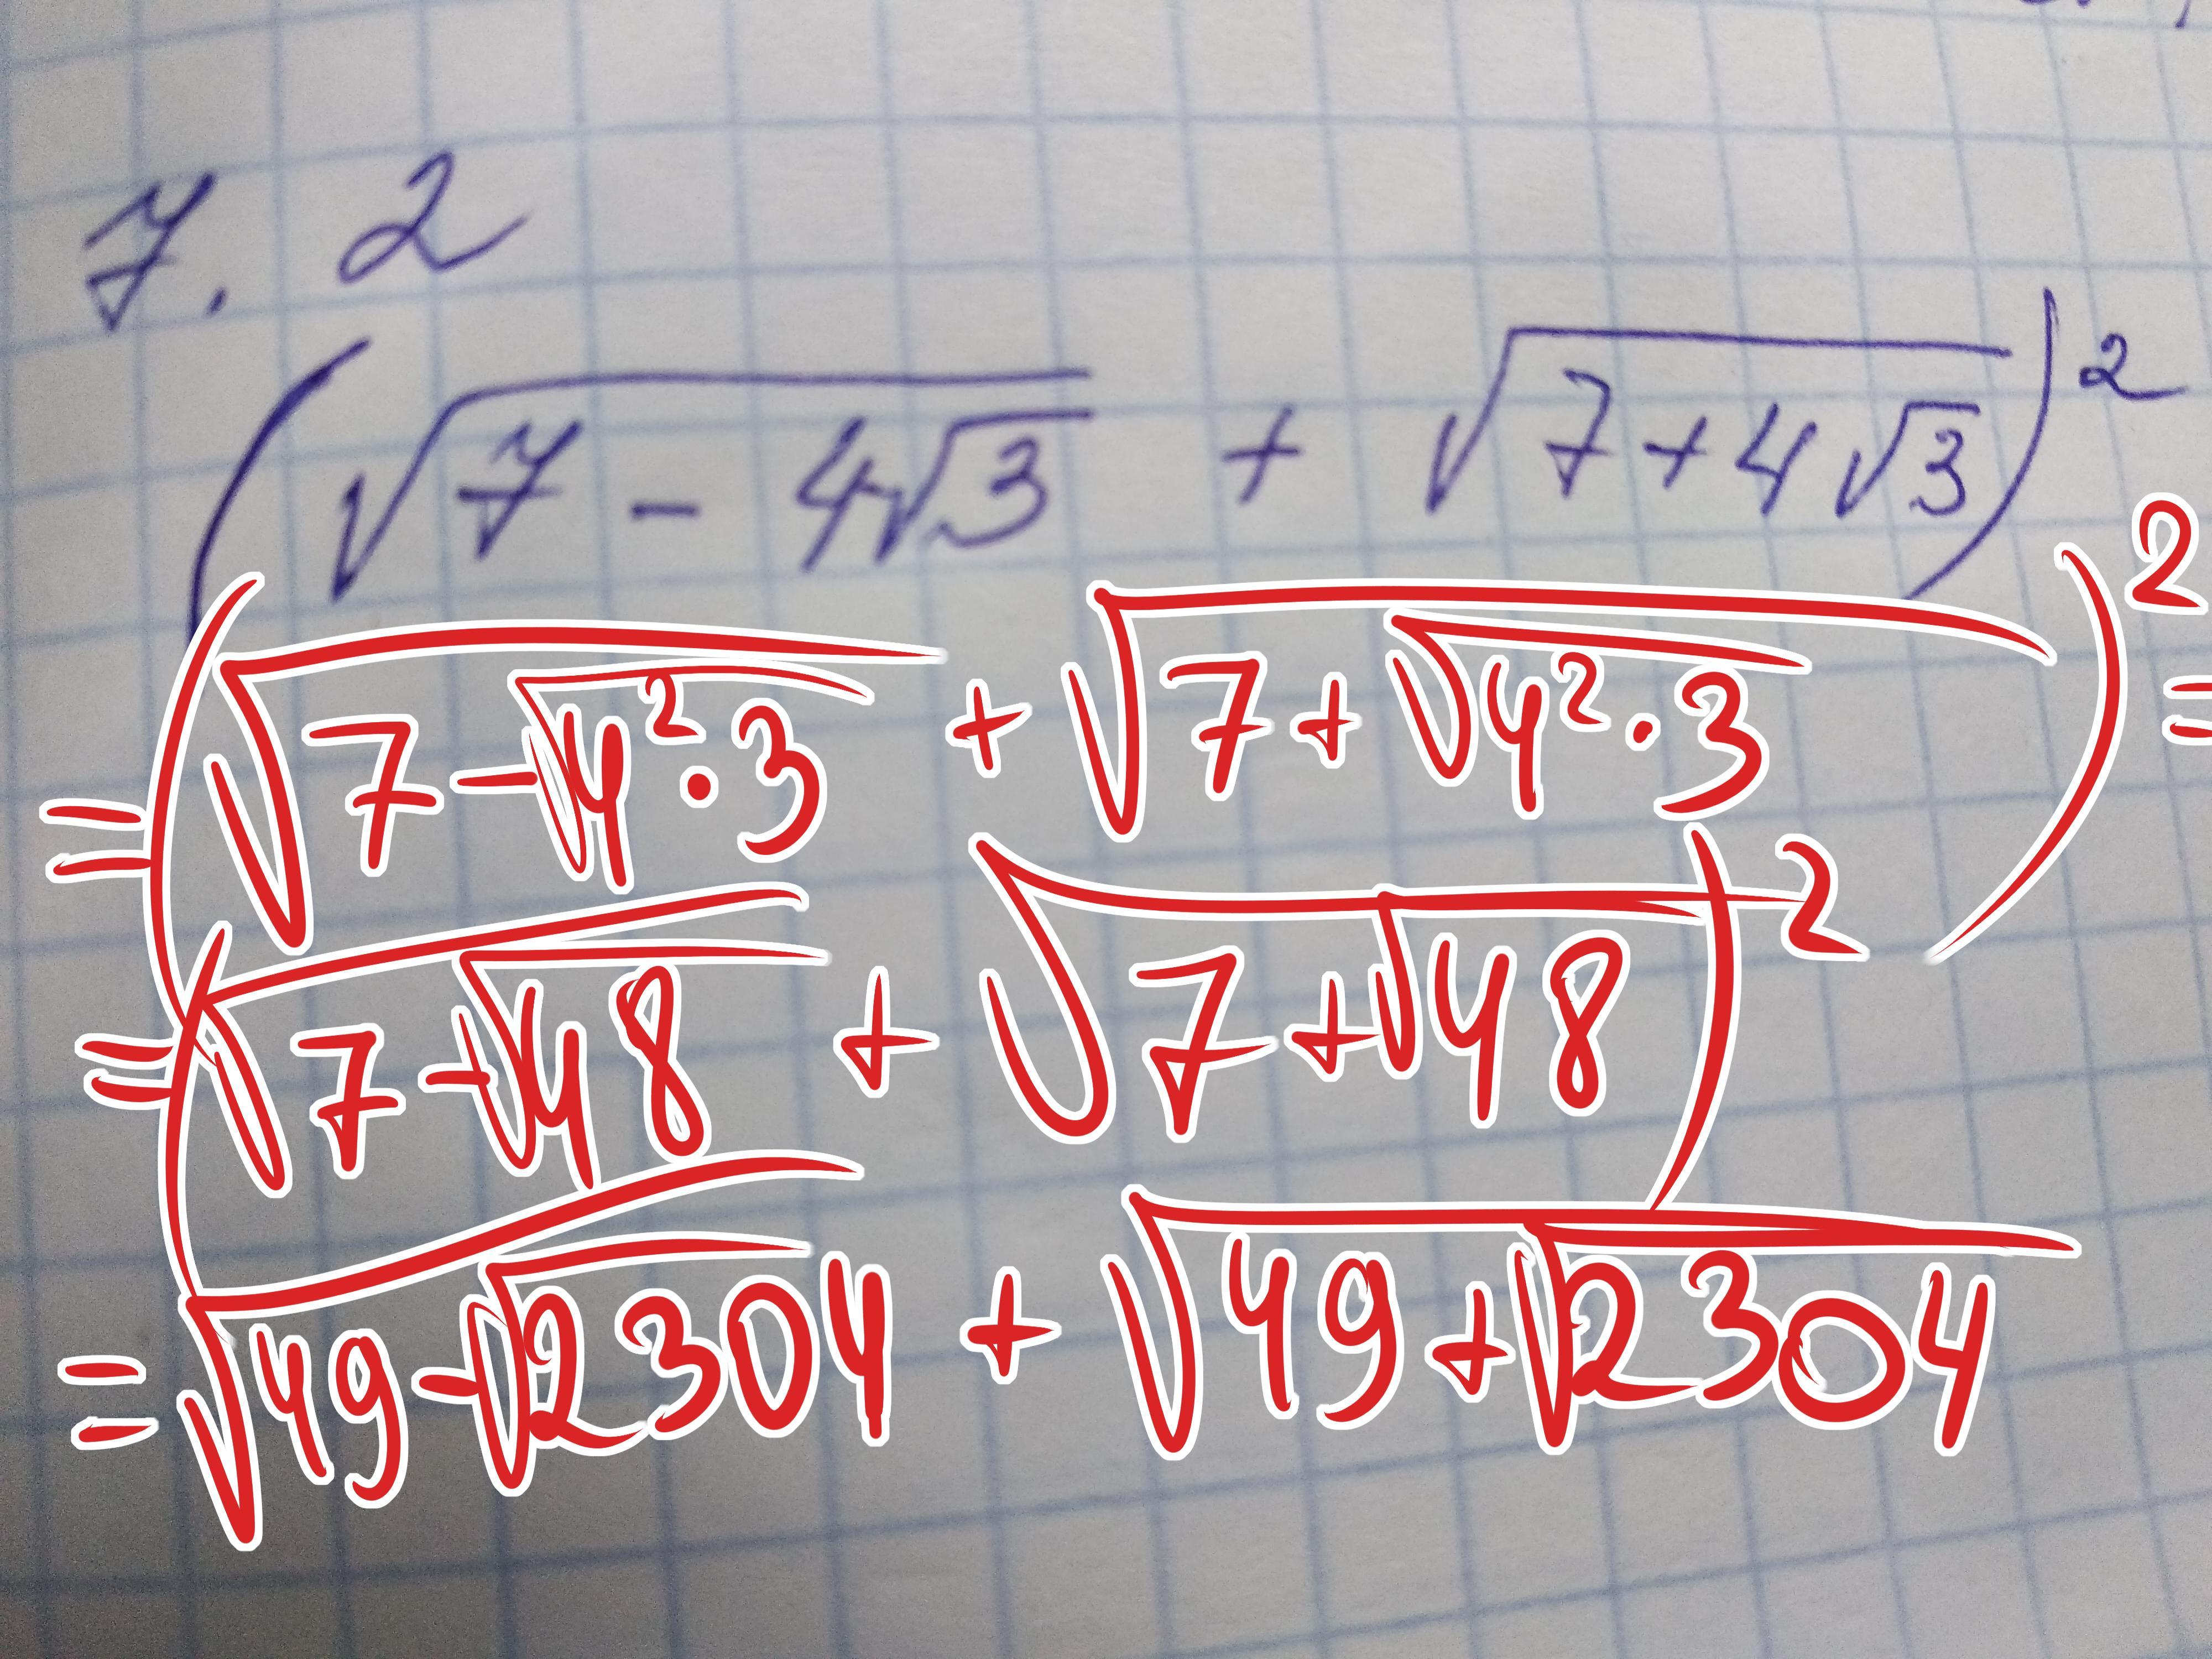 7. 2
(√(7 - 4√3) + √(7 + 4√3))²
= (√(7 - √(4² · 3)) + √(7 + √(4² · 3)))² =
= (√(7 - √48) + √(7 + √48))²
= √(49 - √2304) + √(49 + √2304)